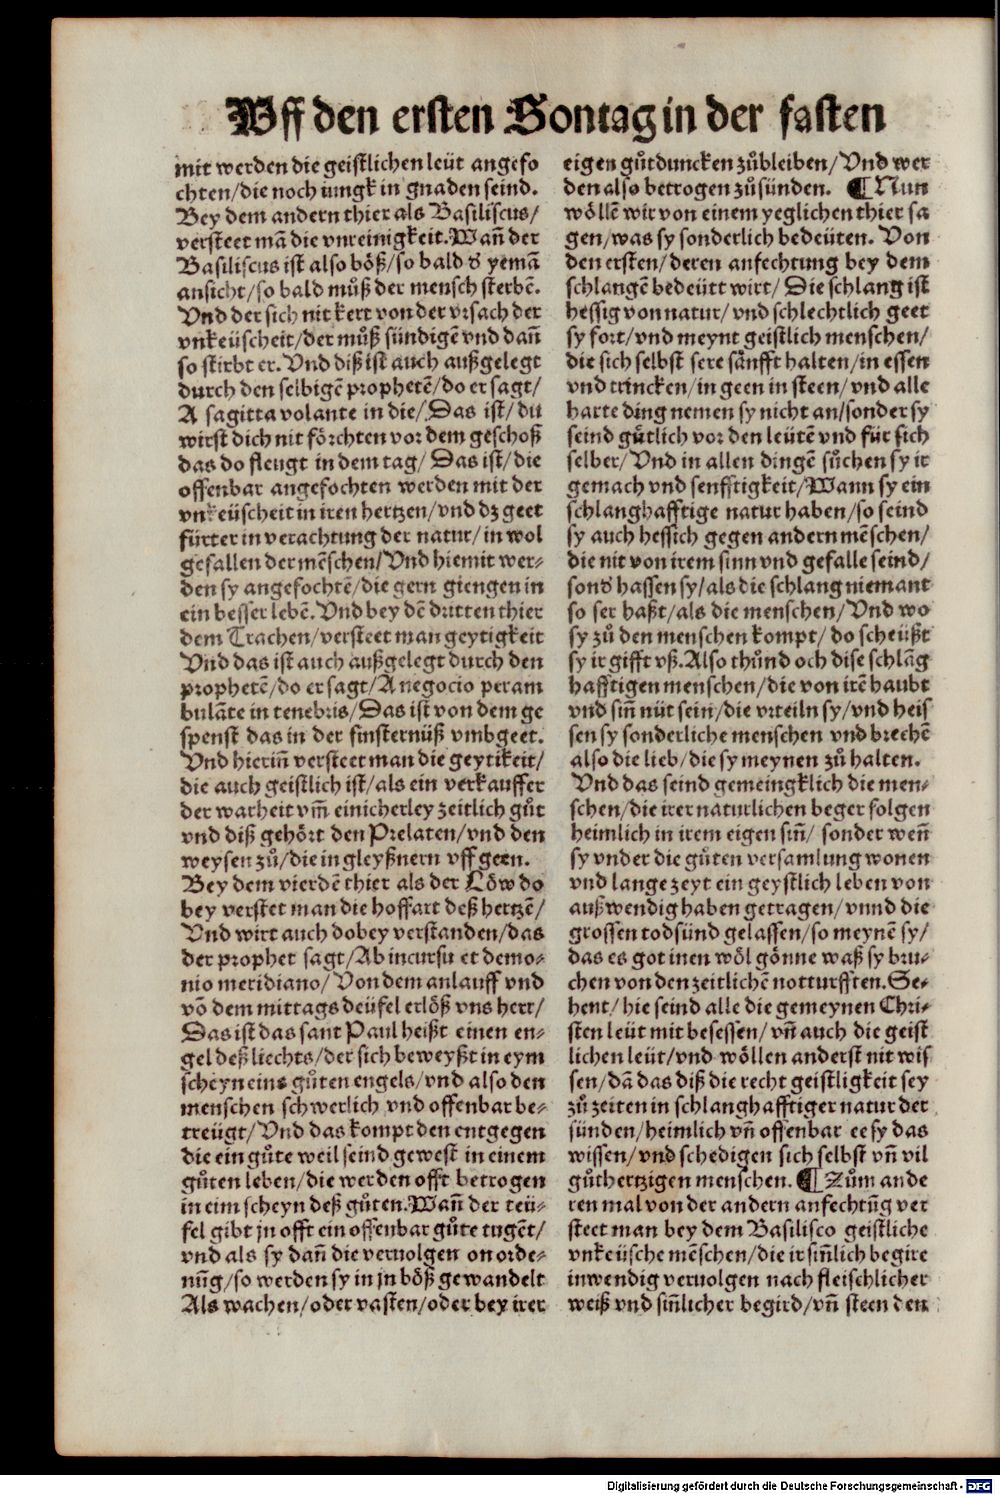 Vff den ersten Sontag in der fasten
mit werden die geistlichen leüt angefo
chten/die noch iungk in gnaden seind.
Bey dem andern thier als Basiliscus/
versteet mā die vnreinigkeit. Wañ der
Basiliscus ist also böß/so bald d' yemā
ansicht/so bald můß der mensch sterbē.
Vnd der sich nit kert von der vrsach der
vnkeüscheit/der můß sündigē vnd dañ
so stirbt er. Vnd diß ist auch außgelegt
durch den selbigē prophetē/do er sagt/
A sagitta volante in die/Das ist/du
wirst dich nit förchten vor dem geschoß
das do fleugt in dem tag/Das ist/die
offenbar angefochten werden mit der
vnkeüscheit in iren hertzen/vnd dz geet
fürter in verachtung der natur/in wol
gefallen der mēschen/Vnd hiemit wer-
den sy angefochtē/die gern giengen in
ein besser lebē. Vnd bey dē dritten thier
dem Trachen/versteet man geytigkeit
Vnd das ist auch außgelegt durch den
prophetē/do er sagt/A negocio peram
bulāte in tenebris/Das ist von dem ge
spenst das in der finsternüß vmbgeet.
Vnd hieriñ versteet man die geytikeit/
die auch geistlich ist/als ein verkauffer
der warheit vm̄ einicherley zeitlich gůt
vnd diß gehört den Prelaten/vnd den
weysen zů/die in gleyßnern vff geen.
Bey dem vierdē thier als der Löw do
bey verstet man die hoffart deß hertzē/
Vnd wirt auch dobey verstanden/das
der prophet sagt/Ab incursu et demo-
nio meridiano/Von dem anlauff vnd
vō dem mittags deüfel erlöß vns herr/
Das ist das sant Paul heißt einen en-
gel deß liechts/der sich beweyßt in eym
scheyn eins gůten engels/vnd also den
menschen schwerlich vnd offenbar be-
treügt/Vnd das kompt den entgegen
die ein gůte weil seind gewest in einem
gůten leben/die werden offt betrogen
in eim scheyn deß gůten. Wañ der teü-
fel gibt jn offt ein offenbar gůte tugēt/
vnd als sy dañ die veruolgen on orde-
nūg/so werden sy in jn böß gewandelt
Als wachen/oder vasten/oder bey irer
eigen gůtduncken zůbleiben/Vnd wer
den also betrogen zůsünden. ¶ Nun
wöllē wir von einem yeglichen thier sa
gen/was sy sonderlich bedeüten. Von
den ersten/deren anfechtung bey dem
schlangē bedeütt wirt/Die schlang ist
hessig von natur/vnd schlechtlich geet
sy fort/vnd meynt geistlich menschen/
die sich selbst sere sänfft halten/in essen
vnd trincken/in geen in steen/vnd alle
harte ding nemen sy nicht an/sonder sy
seind gůtlich vor den leütē vnd für sich
selber/Vnd in allen dingē sůchen sy ir
gemach vnd senfftigkeit/Wann sy ein
schlanghafftige natur haben/so seind
sy auch hessich gegen andern mēschen/
die nit von irem sinn vnd gefalle seind/
sond' hassen sy/als die schlang niemant
so ser haßt/als die menschen/Vnd wo
sy zů den menschen kompt/do scheüßt
sy ir gifft vß. Also thůnd och dise schlāg
hafftigen menschen/die von irē haubt
vnd siñ nüt sein/die vrteiln sy/vnd heis
sen sy sonderliche menschen vnd brechē
also die lieb/die sy meynen zů halten.
Vnd das seind gemeingklich die men-
schen/die irer naturlichen beger folgen
heimlich in irem eigen siñ/sonder weñ
sy vnder die gůten versamlung wonen
vnd lange zeyt ein geystlich leben von
außwendig haben getragen/vnnd die
grossen todsünd gelassen/so meynē sy/
das es got inen wöl gönne waß sy bru-
chen von den zeitlichē notturfften. Se-
hent/hie seind alle die gemeynen Chri-
sten leüt mit besessen/vñ auch die geist
lichen leüt/vnd wöllen anderst nit wis
sen/dā das diß die recht geistligkeit sey
zů zeiten in schlanghafftiger natur der
sünden/heimlich vñ offenbar ee sy das
wissen/vnd schedigen sich selbst vñ vil
gůthertzigen menschen. ¶ Zům ande
ren mal von der andern anfechtūg ver
steet man bey dem Basilisco geistliche
vnkeüsche mēschen/die ir siñlich begire
inwendig veruolgen nach fleischlicher
weiß vnd siñlicher begird/vñ steen den
Digitalisierung gefördert durch die Deutsche Forschungsgemeinschaft - DFG